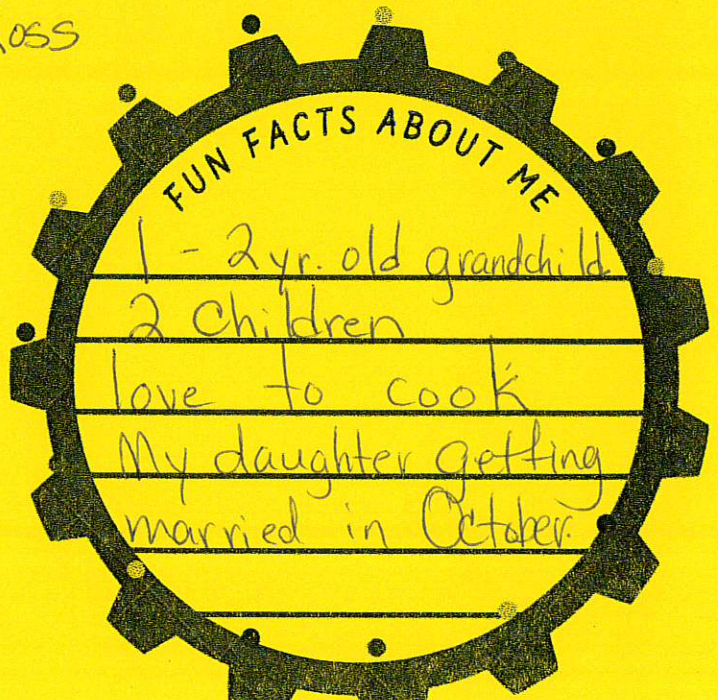 FUN FACTS ABOUT ME
1 - 2yr. old grandchild
2 Children
love to cook
My daughter getting
married in October.